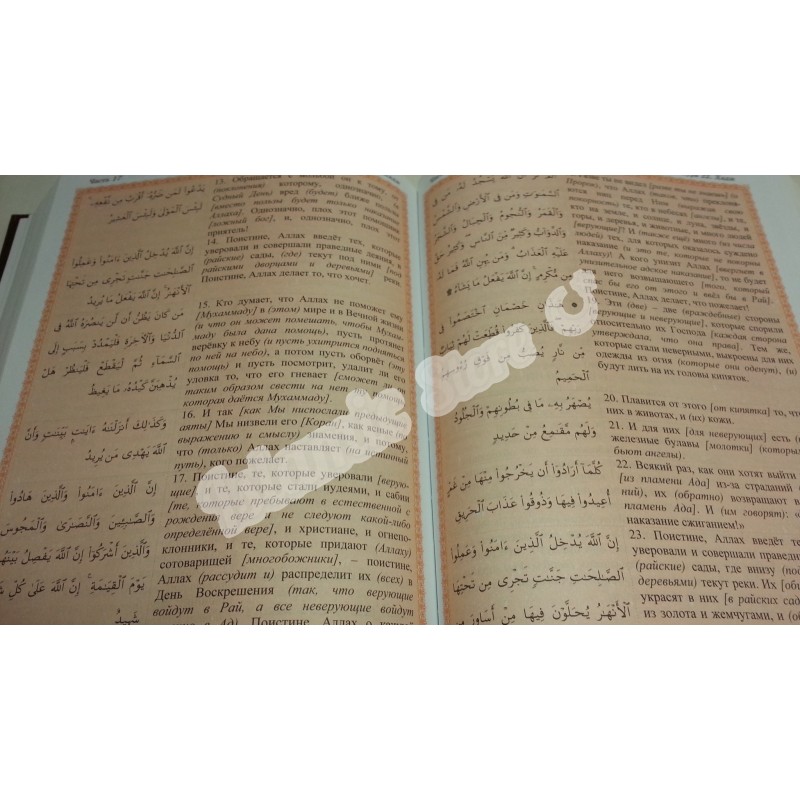 Часть 17
يَدْعُوا۟ لَمَن ضَرُّهُۥٓ أَقْرَبُ مِن نَّفْعِهِۦ ۚ
لَبِئْسَ ٱلْمَوْلَىٰ وَلَبِئْسَ ٱلْعَشِيرُ
إِنَّ ٱللَّهَ يُدْخِلُ ٱلَّذِينَ ءَامَنُوا۟ وَعَمِلُوا۟
ٱلصَّٰلِحَٰتِ جَنَّٰتٍ تَجْرِى مِن تَحْتِهَا
ٱلْأَنْهَٰرُ ۚ إِنَّ ٱللَّهَ يَفْعَلُ مَا يُرِيدُ
مَن كَانَ يَظُنُّ أَن لَّن يَنصُرَهُ ٱللَّهُ فِى
ٱلدُّنْيَا وَٱلْءَاخِرَةِ فَلْيَمْدُدْ بِسَبَبٍ إِلَى
ٱلسَّمَآءِ ثُمَّ لْيَقْطَعْ فَلْيَنظُرْ هَلْ
يُذْهِبَنَّ كَيْدُهُۥ مَا يَغِيظُ
وَكَذَٰلِكَ أَنزَلْنَٰهُ ءَايَٰتٍۭ بَيِّنَٰتٍ وَأَنَّ
ٱللَّهَ يَهْدِى مَن يُرِيدُ
إِنَّ ٱلَّذِينَ ءَامَنُوا۟ وَٱلَّذِينَ هَادُوا۟
وَٱلصَّٰبِـِٔينَ وَٱلنَّصَٰرَىٰ وَٱلْمَجُوسَ
وَٱلَّذِينَ أَشْرَكُوٓا۟ إِنَّ ٱللَّهَ يَفْصِلُ بَيْنَهُمْ
يَوْمَ ٱلْقِيَٰمَةِ ۚ إِنَّ ٱللَّهَ عَلَىٰ كُلِّ
شَهِيدٌ
(поклонения) которому, однозначно,
Судный День) вред (будет) ближе,
[вместо пользы будет только
Аллаха]. Однозначно, плох этот
[ложный бог], и, однозначно, плох
приятель!
14. Поистине, Аллах введёт тех, которые
уверовали и совершали праведные деяния, в
(райские) сады, (где) текут под ними [под
райскими дворцами и деревьями] реки.
Поистине, Аллах делает то, что хочет.
15. Кто думает, что Аллах не поможет ему
[Мухаммаду] в (этом) мире и в Вечной жизни
(и что он может помешать, чтобы Мухам-
маду была дана помощь), пусть протянет
верёвку к небу (и пусть ухитрится подняться
по ней на небо), а потом пусть оборвёт
помощь) и пусть посмотрит, удалит ли его
уловка то, что его гневает [сможет ли
таким образом свести на нет
которая даётся Мухаммаду].
16. И так [как Мы ниспослали предыдущие
аяты] Мы низвели его [Коран], как ясные
выражению и смыслу) знамения, и потому,
что (только) Аллах наставляет (на истинный
путь), кого пожелает.
17. Поистине, те, которые уверовали [верую-
щие], и те, которые стали иудеями, и сабии
[те, которые пребывают в естественной с
рождения вере и не следуют какой-либо
определённой вере], и христиане, и огнепо-
клонники, и те, которые придают (Аллаху)
сотоварищей [многобожники], – поистине,
Аллах (рассудит и) распределит их (всех) в
День Воскрешения (так, что верующие
войдут в Рай, а все неверующие войдут
Поистине, Аллах о
ٱلسَّمَٰوَٰتِ وَمَن فِى ٱلْأَرْضِ
وَٱلْقَمَرُ وَٱلنُّجُومُ وَٱلْجِبَالُ
وَٱلدَّوَآبُّ وَكَثِيرٌ مِّنَ ٱلنَّاسِ ۖ وَكَثِيرٌ حَقَّ
عَلَيْهِ ٱلْعَذَابُ ۗ وَمَن يُهِنِ ٱللَّهُ فَمَا لَهُۥ
مِن مُّكْرِمٍ ۚ إِنَّ ٱللَّهَ يَفْعَلُ مَا يَشَآءُ ۩
خَصْمَانِ ٱخْتَصَمُوا۟ فِى
رَبِّهِمْ ۖ فَٱلَّذِينَ كَفَرُوا۟ قُطِّعَتْ لَهُمْ
مِّن نَّارٍ يُصَبُّ مِن فَوْقِ رُءُوسِهِمُ
ٱلْحَمِيمُ
يُصْهَرُ بِهِۦ مَا فِى بُطُونِهِمْ وَٱلْجُلُودُ
وَلَهُم مَّقَٰمِعُ مِنْ حَدِيدٍ
كُلَّمَآ أَرَادُوٓا۟ أَن يَخْرُجُوا۟ مِنْهَا مِنْ غَمٍّ
أُعِيدُوا۟ فِيهَا وَذُوقُوا۟ عَذَابَ ٱلْحَرِيقِ
إِنَّ ٱللَّهَ يُدْخِلُ ٱلَّذِينَ ءَامَنُوا۟ وَعَمِلُوا۟
ٱلصَّٰلِحَٰتِ جَنَّٰتٍ تَجْرِى مِن تَحْتِهَا
ٱلْأَنْهَٰرُ يُحَلَّوْنَ فِيهَا مِنْ أَسَاوِرَ مِن
что Аллах
кто на земле, и солнце, и луна, и звёзды, и
горы, и деревья, и животные, и много
[верующие]? И (также ещё) много (из числа
людей) тех, для которых оказалось суждено
наказание
Аллаху)! А кого унизил Аллах [ввергнет в
унизительное адское наказание], то не будет
него возвышающего [того, который
Поистине, Аллах делает, что пожелает!
19. Эти (две) – две (враждебные) стороны
[верующие и неверующие], которые спорили
относительно их Господа [каждая сторона
утверждала, что она права]. Тем же,
которые стали неверными, выкроены для них
одежды из огня (которые они оденут), и)
будут лить на их головы кипяток.
20. Плавится от этого [от кипятка] то, что
них в животах, и (их) кожи.
21. И для них [для неверующих] есть
железные булавы [молотки] (которыми
бьют ангелы).
22. Всякий раз, как они хотят выйти
[из пламени Ада] из-за страданий
ний), их (обратно) возвращают в
пламень Ада]. И (им говорят): «
наказание сжиганием!»
23. Поистине, Аллах введёт те
уверовали и совершали праведн
(райские) сады, где внизу [под
деревьями] текут реки. Их [об
украсят в них [в райских сада
из золота и жемчугами, и (о